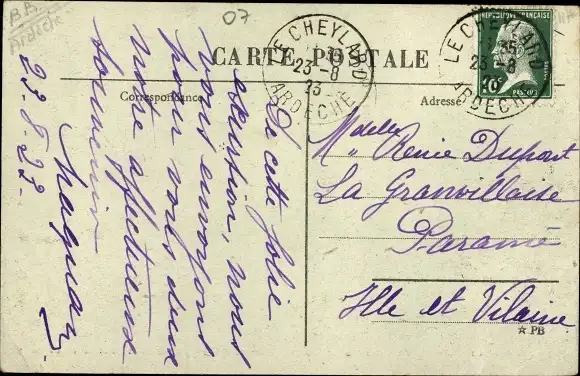 B.B.
Ardèche
07
CARTE POSTALE
Correspondance
Adresse
LE CHEYLARD
23 - 8
23
ARDECHE
LE CHEYLARD
35
23 - 8
ARDECHE
REPUBLIQUE FRANÇAISE
10c
POSTES
De cette jolie
excursion, nous
vous envoyons
pour vous deux
notre affectueux
souvenir
Magnan
23.8.23.
Mdelle Renée Dupont
La Granvillaise
Paramé
Ille et Vilaine
PB